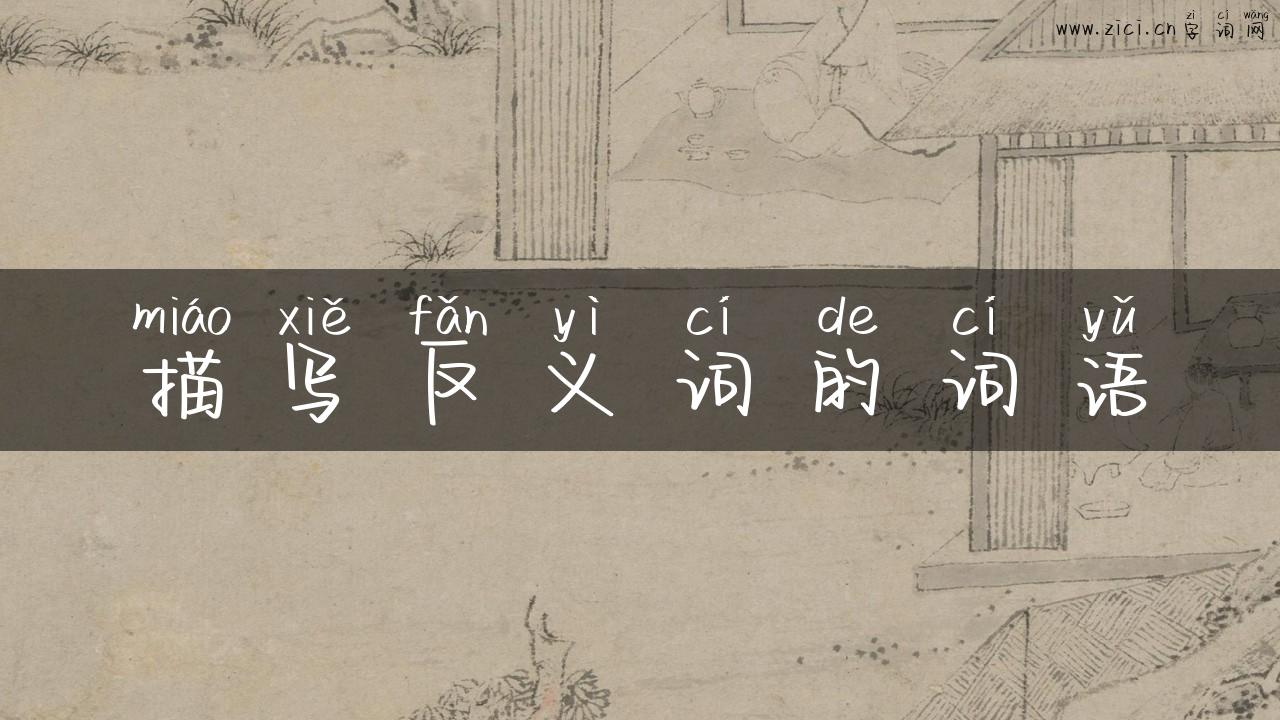 zì cí wǎng
www.zici.cn 字词网
miáo xiě fǎn yì cí de cí yǔ
描写反义词的词语